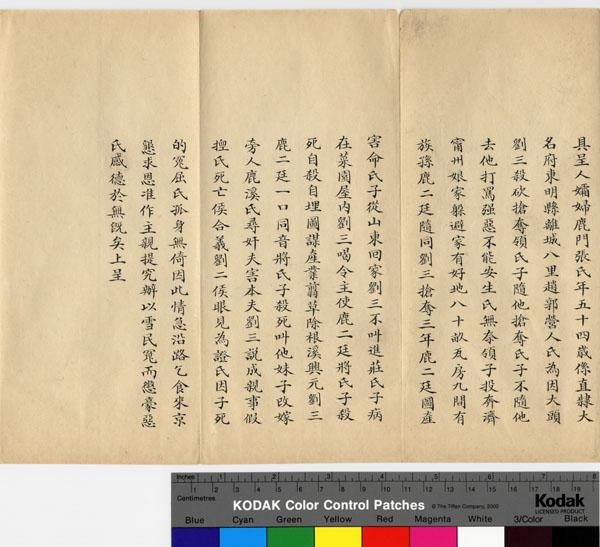 具呈人孀婦鹿門張氏年五十四歲係直隸大
名府東明縣離城八里趙郭營人氏為因大頭
劉三殺砍搶奪領氏子隨他搶奪氏子不隨他
去他打罵强惡不能安生氏無奈領子投奔濟
甯州娘家躲避家有好地八十畝瓦房九間有
族孫鹿二廷隨同劉三搶奪三年鹿二廷圖產
害命氏子從山東回家劉三不叫進莊氏子病
在菜園屋内劉三喝令主使鹿二廷將氏子殺
死自殺自埋圖謀產業翦草除根溪興元劉三
鹿二廷一口同音將氏子殺死叫他妹子改嫁
旁人鹿溪氏尋奸夫害本夫劉三説成親事假
捏氏死亡侯合義劉二侯眼見為證氏因子死
的冤屈氏孤身無倚因此情急沿路乞食來京
懇求恩准作主親提究辦以雪民冤而懲豪惡
氏感德於無既矣上呈
Inches 1 2 3 4 5 6 7 8
Centimetres 1 2 3 4 5 6 7 8 9 10 11 12 13 14 15 16 17 18 19
KODAK Color Control Patches © The Tiffen Company, 2000 Kodak
LICENSED PRODUCT
Blue Cyan Green Yellow Red Magenta White 3/Color Black